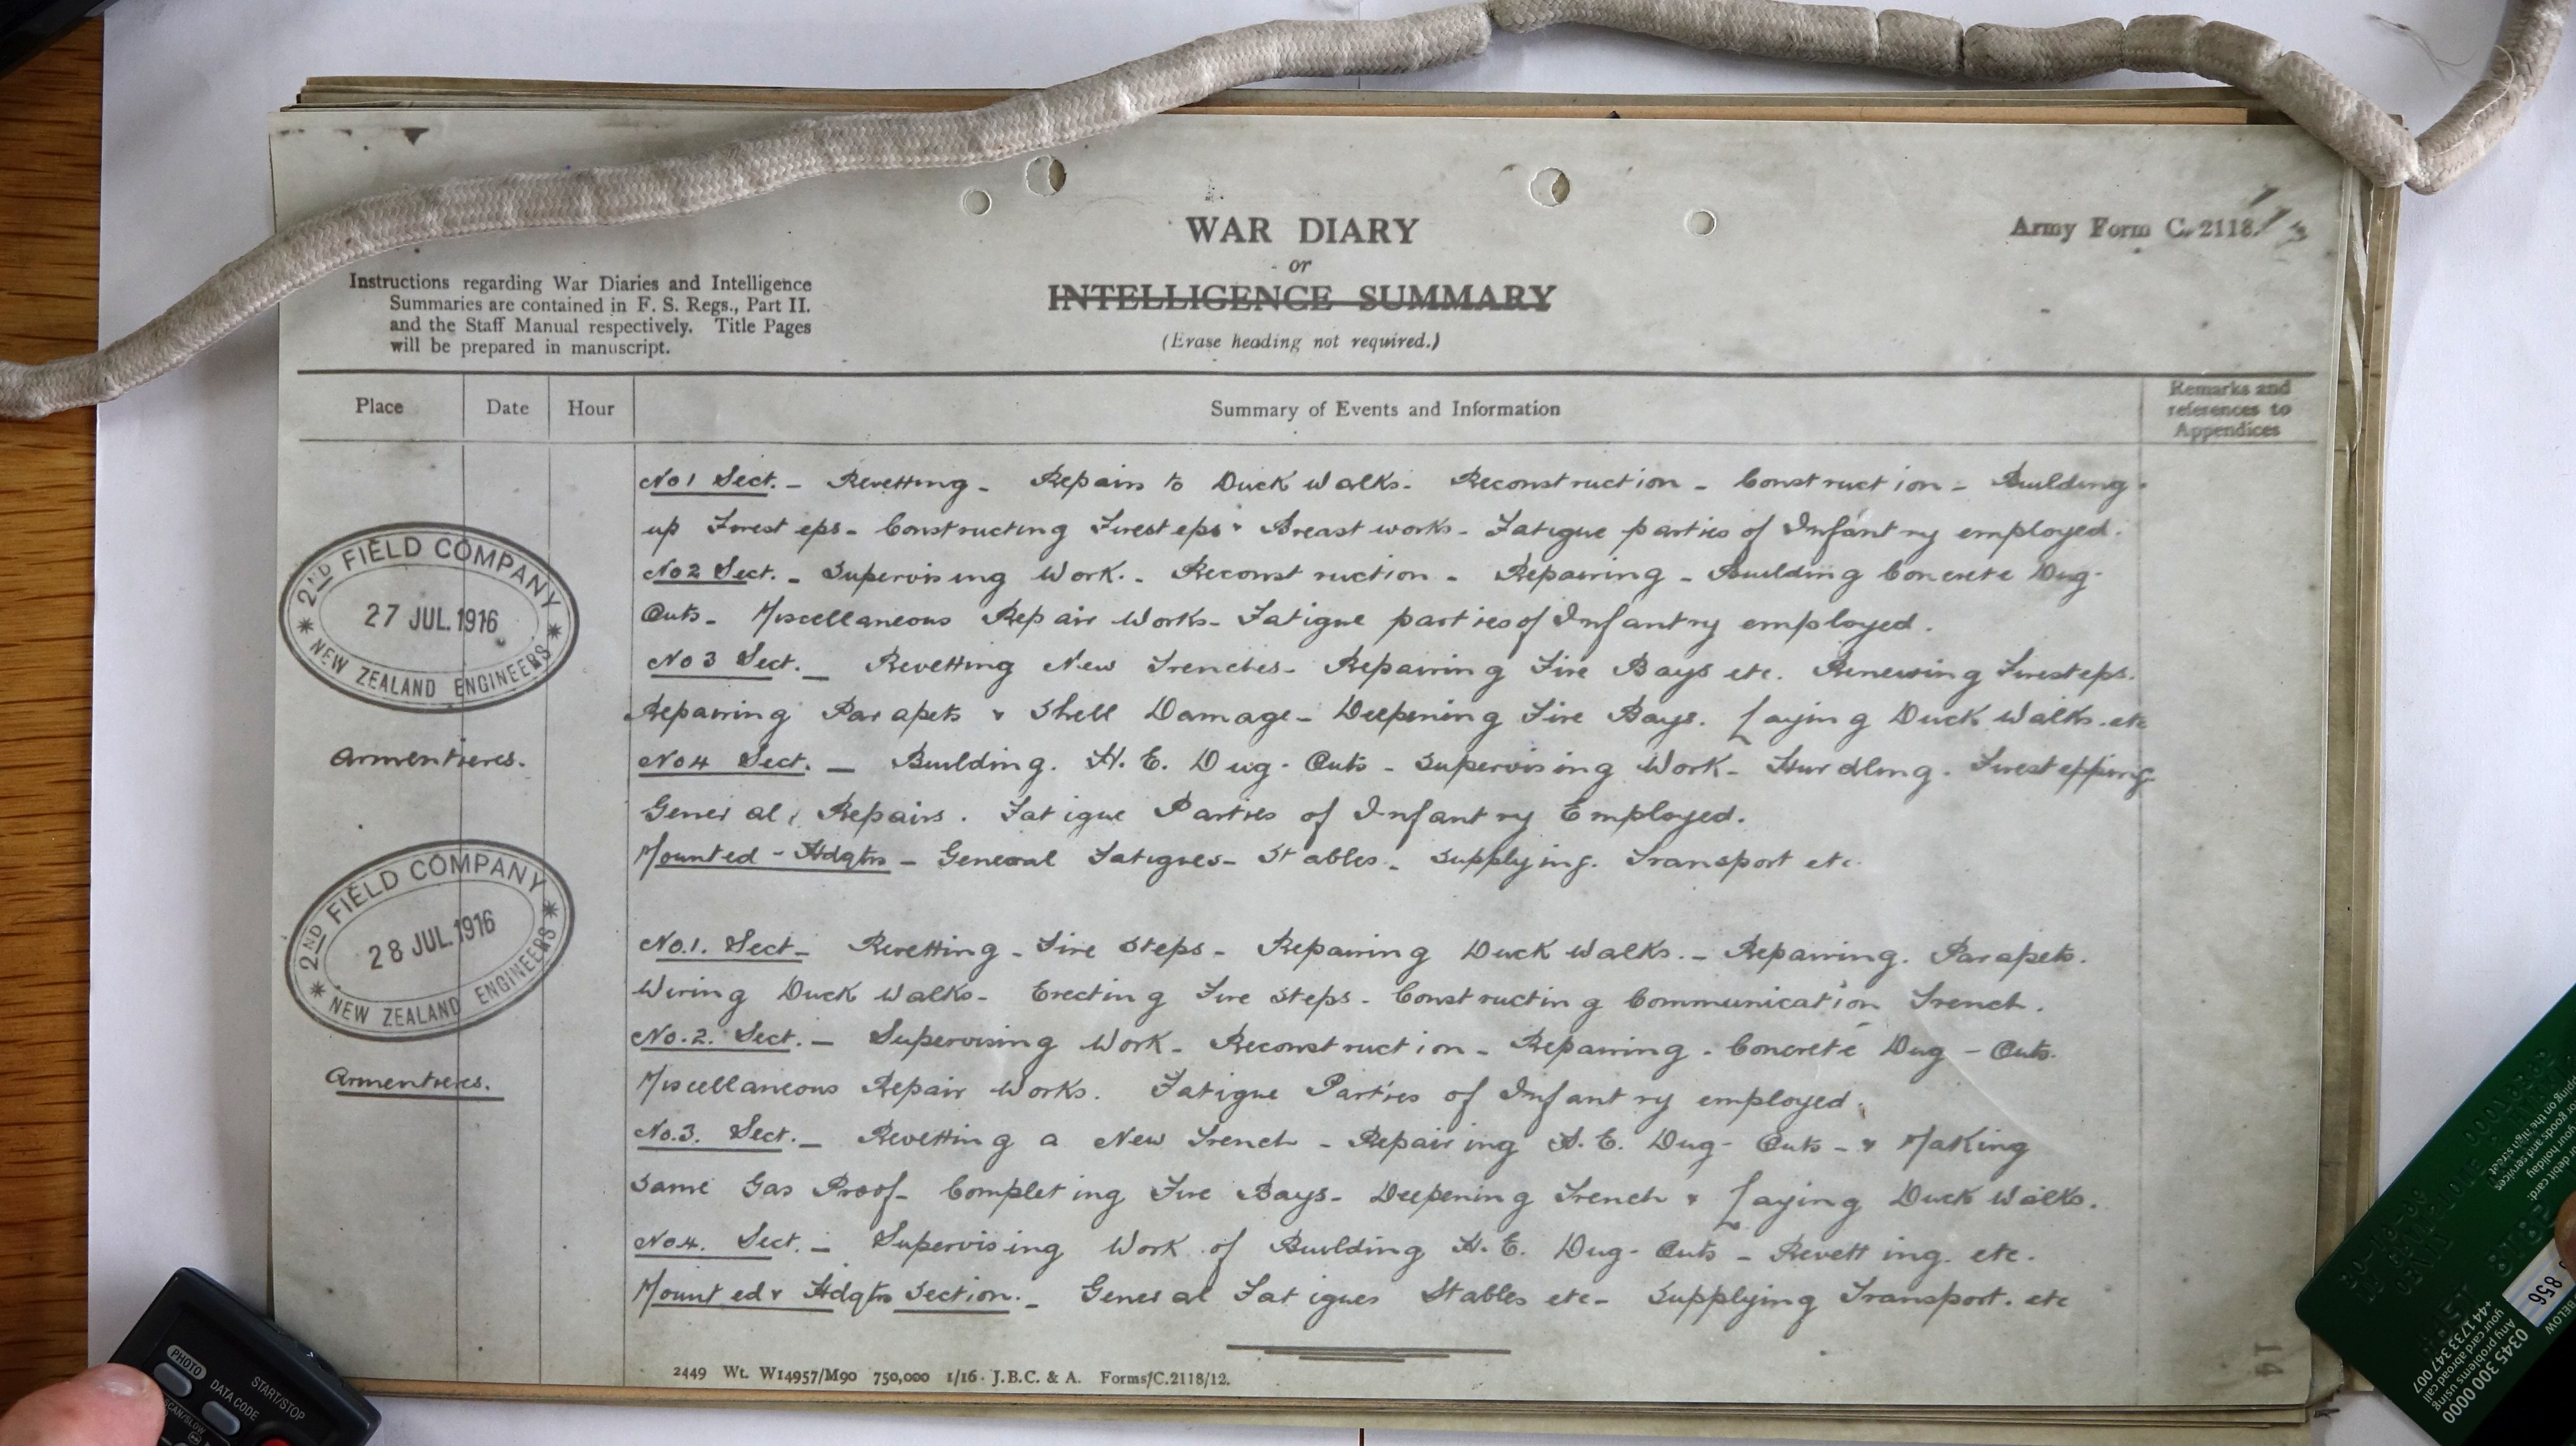 WAR DIARY
or
INTELLIGENCE SUMMARY
(Erase heading not required.)
Army Form C. 2118.
Instructions regarding War Diaries and Intelligence
Summaries are contained in F. S. Regs., Part II.
and the Staff Manual respectively. Title Pages
will be prepared in manuscript.
Place Date Hour Summary of Events and Information
Remarks and
references to
Appendices
2ND FIELD COMPANY
27 JUL. 1916
NEW ZEALAND ENGINEERS
Armentieres.
No 1 Sect. - Revetting - Repairs to Duck Walks. Reconstruction - Construction - Building
up Firesteps - Constructing Firesteps & Breastworks - Fatigue parties of Infantry employed.
No 2 Sect. - Supervising Work. - Reconstruction - Repairing - Building Concrete Dug-
Outs - Miscellaneous Repair Works - Fatigue parties of Infantry employed.
No 3 Sect. - Revetting New Trenches - Repairing Fire Bays etc. Renewing Firesteps.
Repairing Parapets & Shell Damage - Deepening Fire Bays. Laying Duck Walks. etc
No 4 Sect. - Building. H. E. Dug-Outs - Supervising Work - Hurdling. Firestepping
General Repairs. Fatigue Parties of Infantry Employed.
Mounted - Hdqtrs - General Fatigues - Stables - Supplying. Transport etc.
2ND FIELD COMPANY
28 JUL. 1916
NEW ZEALAND ENGINEERS
Armentieres.
No. 1. Sect - Revetting - Fire Steps - Repairing Duck Walks. - Repairing. Parapets.
Wiring Duck Walks - Erecting Fire Steps - Constructing Communication Trench.
No. 2. Sect. - Supervising Work - Reconstruction - Repairing. Concrete Dug-Outs.
Miscellaneous Repair Works. Fatigue Parties of Infantry employed.
No. 3. Sect. - Revetting a New Trench - Repairing H. E. Dug-Outs - & Making
Same Gas Proof - Completing Fire Bays - Deepening Trench & Laying Duck Walks.
No 4. Sect. - Supervising Work of Building H. E. Dug-Outs - Revetting. etc.
Mounted & Hdqtrs Section. - General Fatigues Stables etc - Supplying Transport. etc
2449 Wt. W14957/M90 750,000 1/16 J.B.C. & A. Forms/C.2118/12.
14
PHOTO
DATA CODE
START/STOP
856
BELOW
0345 300 0000
+44 1733 347 007